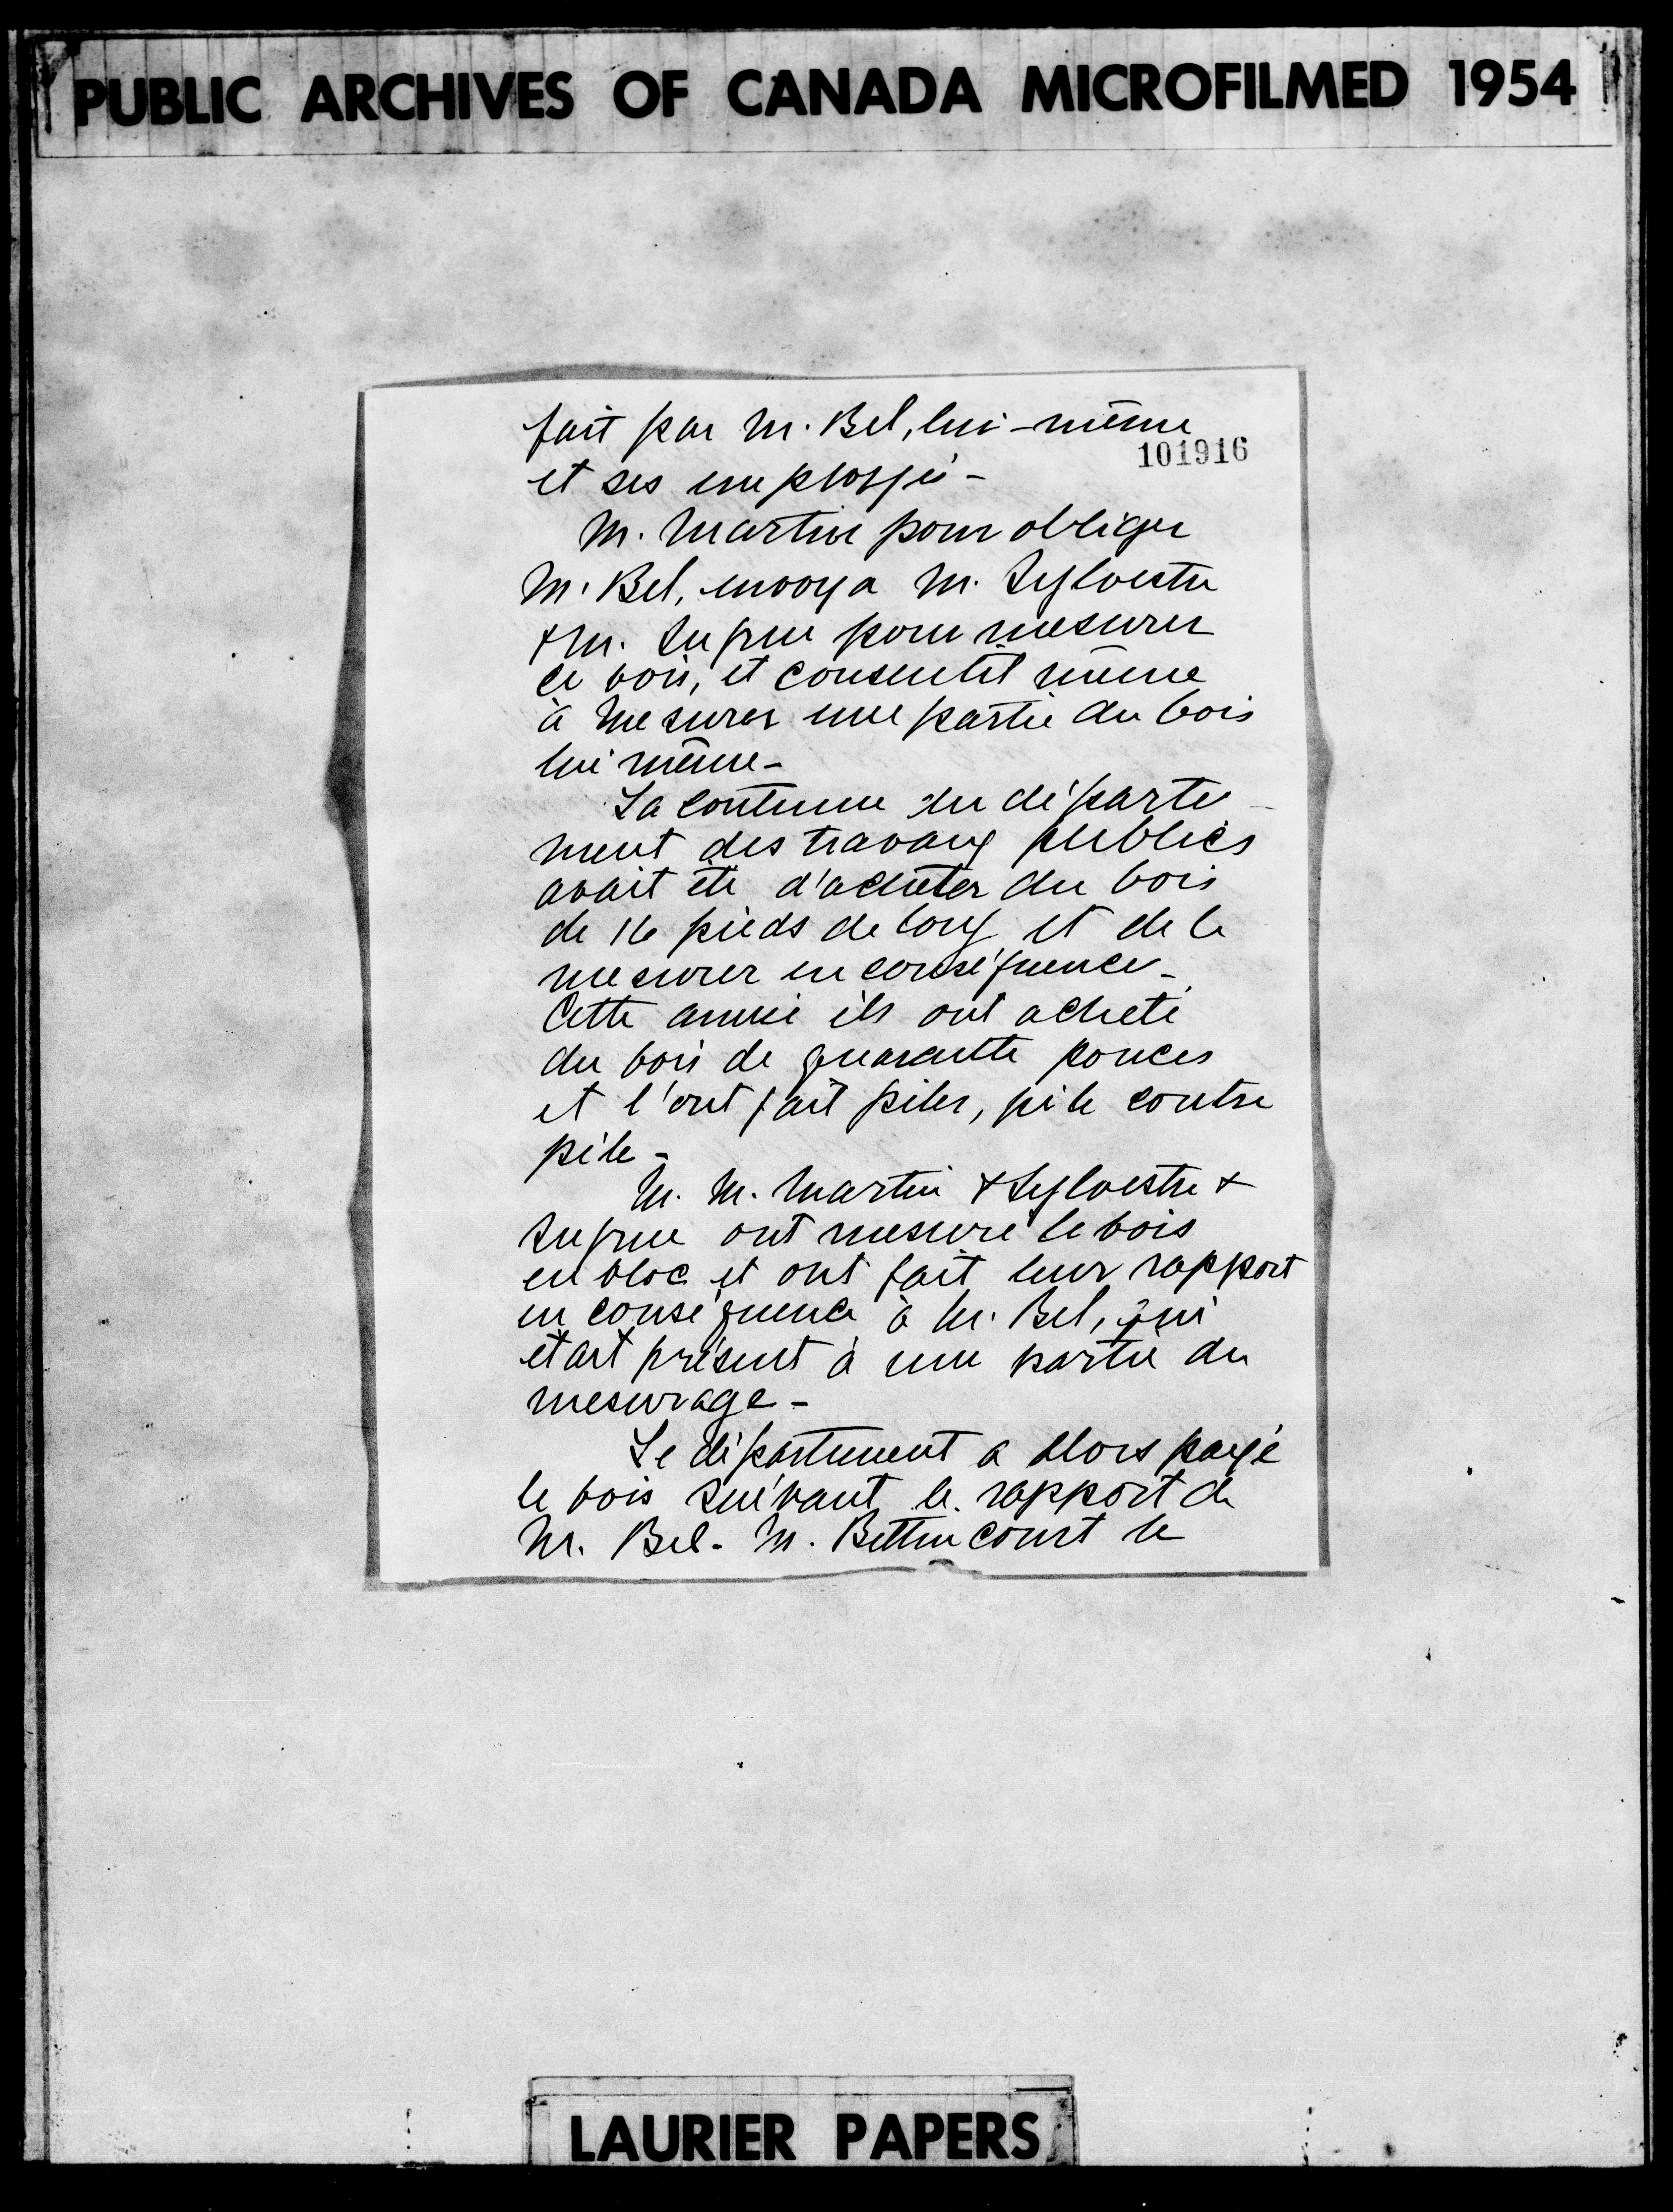 PUBLIC ARCHIVES OF CANADA MICROFILMED 1954
fait par M. Bel, lui-même
101916
et ses employés -
M. Martin pour obliger
M. Bel, envoya M. Sylvestre
& M. pour mesurer
ce bois, et consentit même
à mesurer une partie du bois
lui même -
La coutume du départe-
ment des travaux publics
avait été d'acheter du bois
de 16 pieds de long et de le
mesurer en conséquence -
Cette année ils ont acheté
du bois de quarante pouces
et l'ont fait piler, pile contre
pile -
M. M. Martin & Sylvestre &
ont mesuré le bois
en bloc et ont fait leur rapport
en conséquence à M. Bel, qui
était présent à une partie du
mesurage -
Le département a alors payé
le bois suivant le rapport de
M. Bel - M. Bettincourt le
LAURIER PAPERS